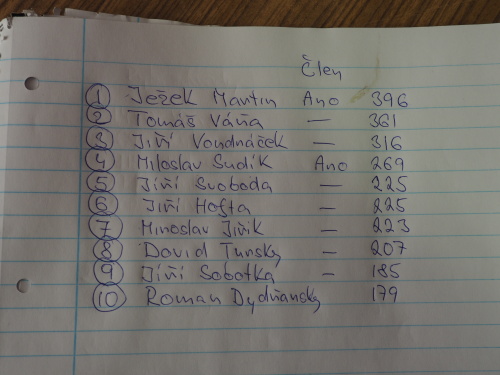 Člen
1 Ježek Martin Ano 396
2 Tomáš Váňa — 361
3 Jiří Vondráček — 316
4 Miloslav Sudík Ano 269
5 Jiří Svoboda — 225
6 Jiří Hofta — 225
7 Miroslav Jiřík — 223
8 David Turský — 207
9 Jiří Sobotka — 185
10 Roman 179